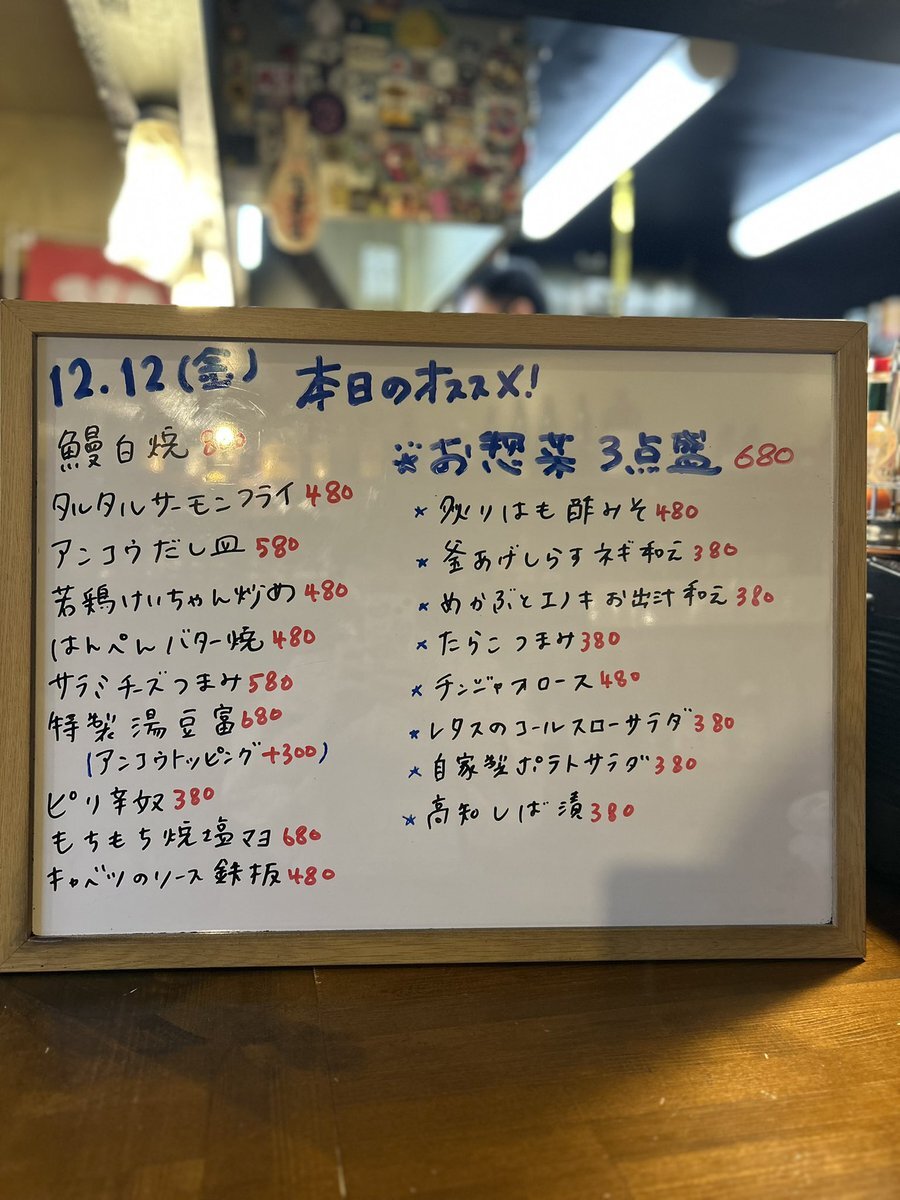 12.12(金)
本日のオススメ!
鰻白焼
タルタルサーモンフライ 480
アンコウだし皿 580
若鶏けいちゃん炒め 480
はんぺんバター焼 480
サラミチーズつまみ 580
特製湯豆富 680
(アンコウトッピング+300)
ピリ辛奴 380
もちもち焼塩マヨ 680
キャベツのソース鉄板 480
※お惣菜 3点盛 680
* 炙りはも酢みそ 480
* 釜あげしらすネギ和え 380
* めかぶとエノキお出汁和え 380
* たらこつまみ 380
* チンジャオロース 480
* レタスのコールスローサラダ 380
* 自家製ポテトサラダ 380
* 高知しば漬 380